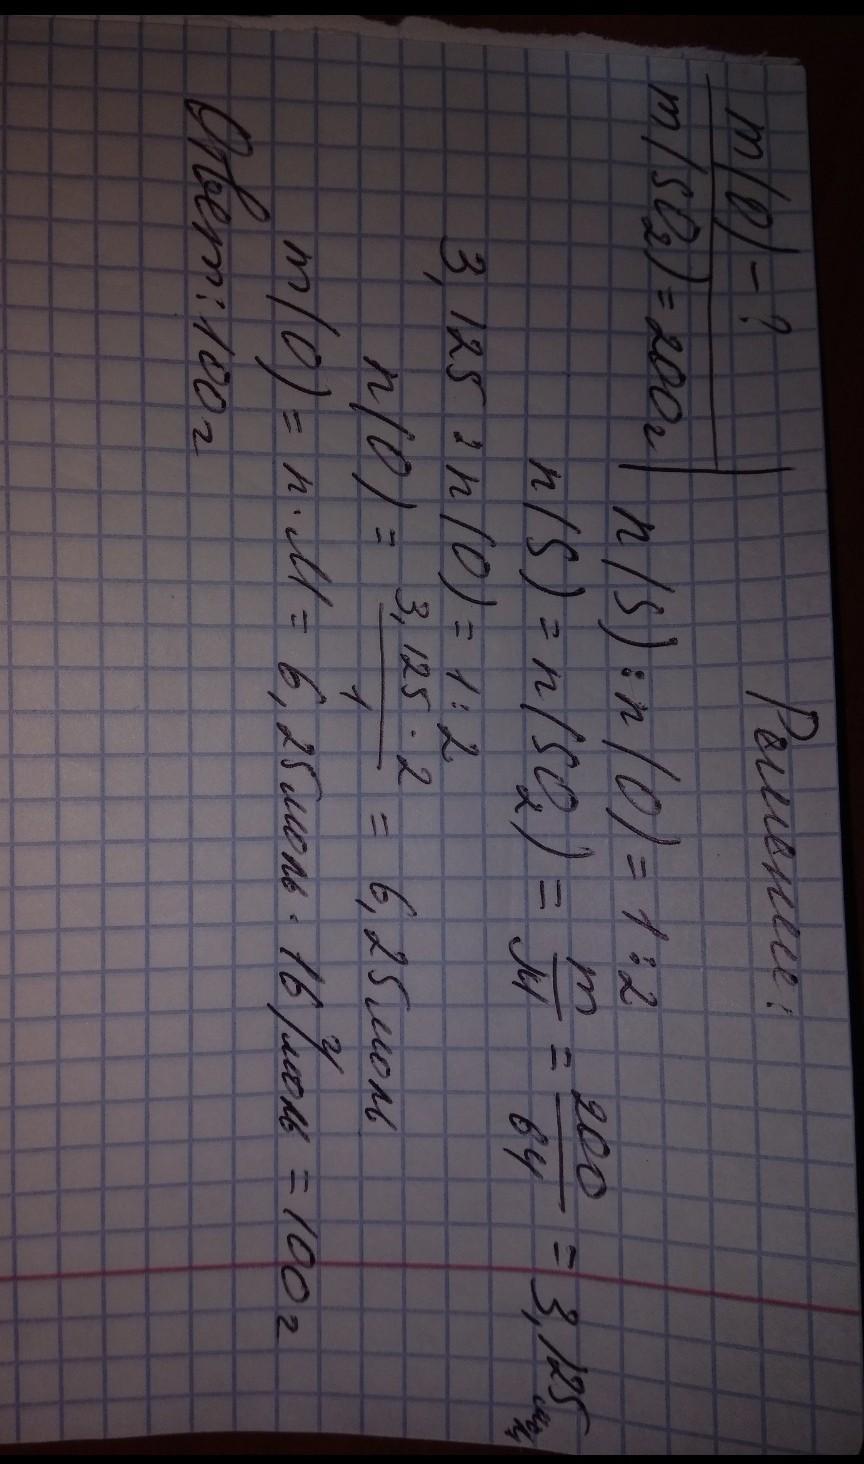 Решение:
m(O) - ?
m(SO₂) = 200г
n(S) : n(O) = 1:2
n(S) = n(SO₂) = m/M = 200/64 = 3,125 моль
3,125 : n(O) = 1:2
n(O) = 3,125·2/1 = 6,25моль
m(O) = n·M = 6,25моль·16г/моль = 100г
Ответ: 100г